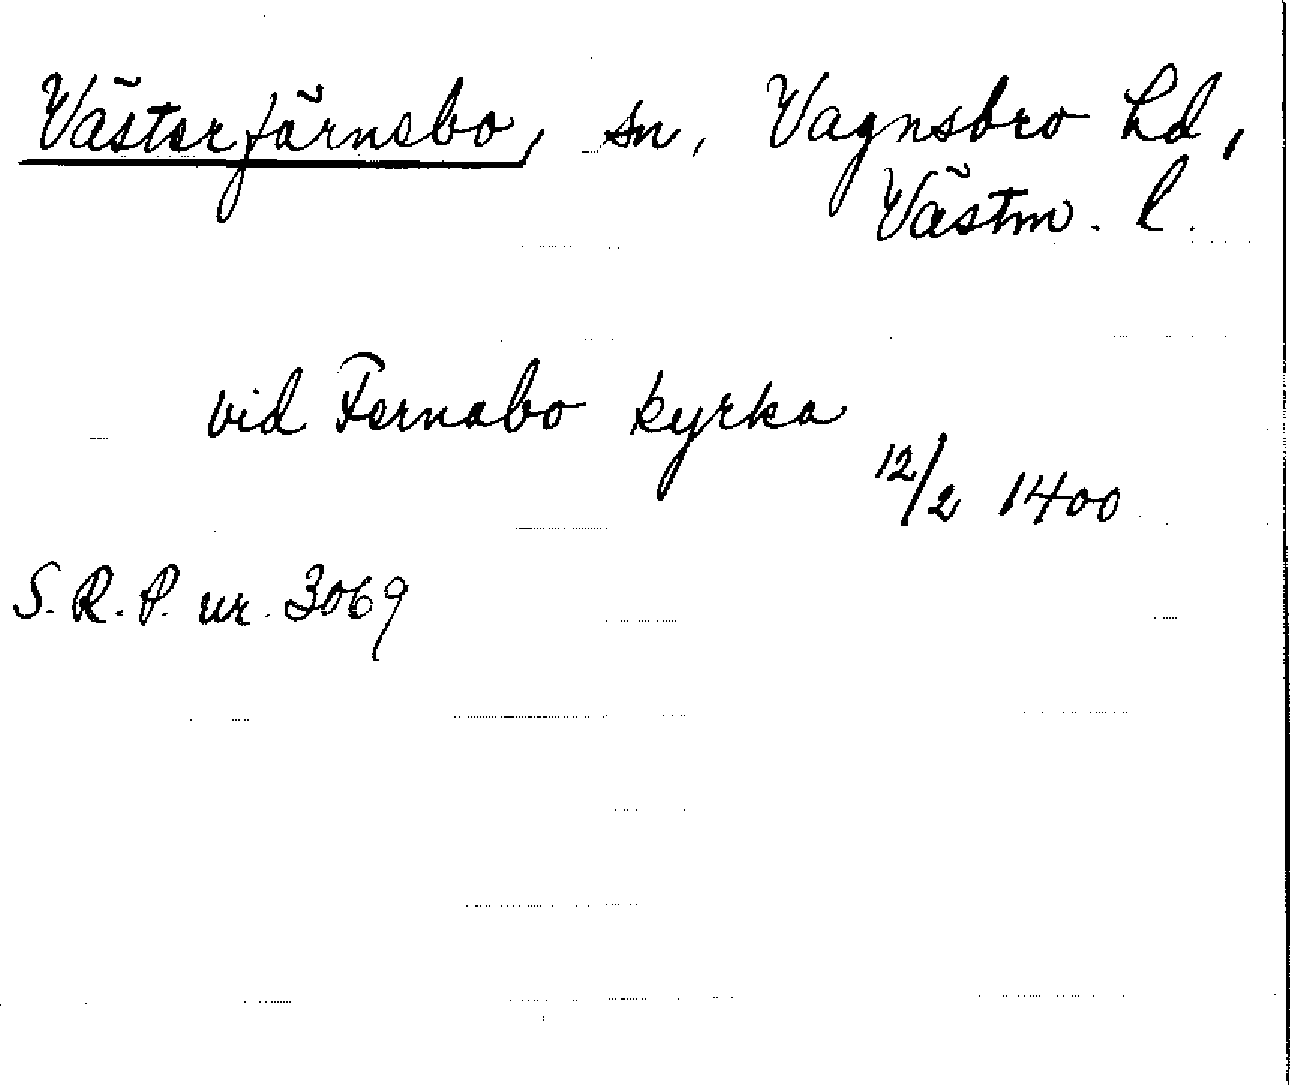 Västerfärnebo, sn, Vagnsbro hd,
Västm. l.
vid Fernabo kyrka
12/2 1400
S.R.P. nr. 3069